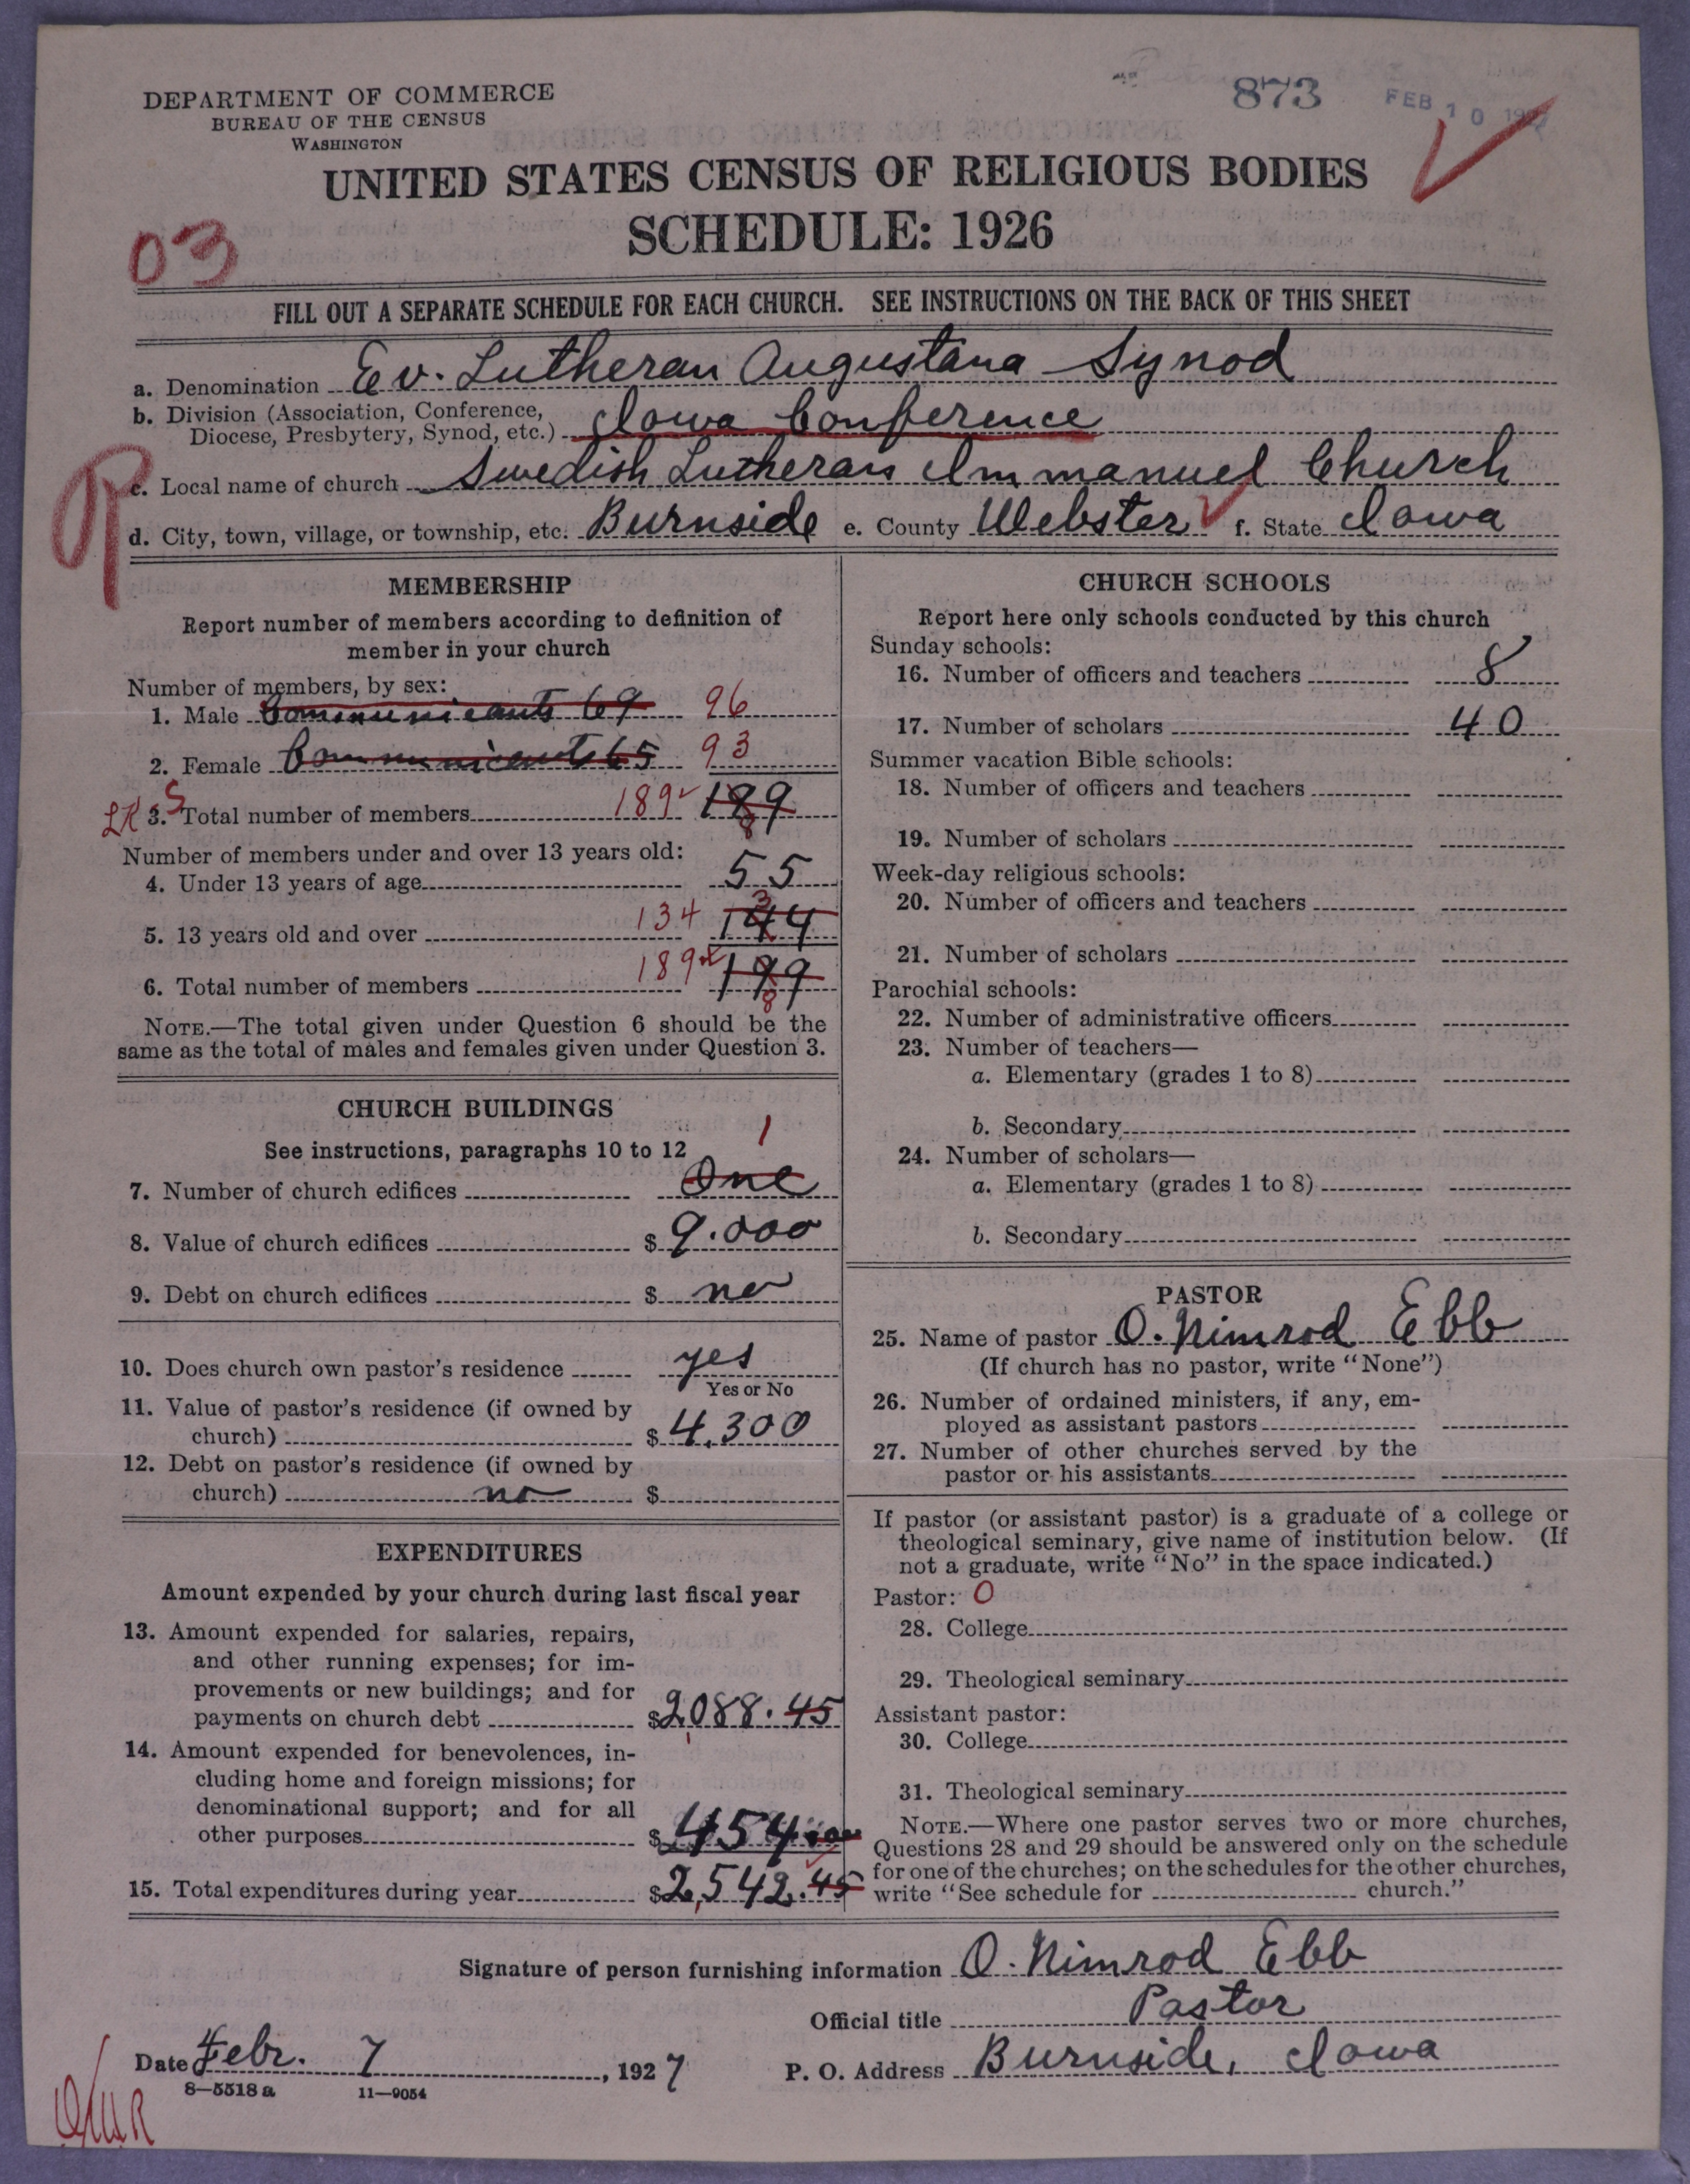 DEPARTMENT OF COMMERCE
BUREAU OF THE CENSUS
WASHINGTON
873 FEB 10 192
UNITED STATES CENSUS OF RELIGIOUS BODIES
SCHEDULE: 1926
03
FILL OUT A SEPARATE SCHEDULE FOR EACH CHURCH. SEE INSTRUCTIONS ON THE BACK OF THIS SHEET
a. Denomination Ev. Lutheran Augustana Synod
b. Division (Association, Conference,
Diocese, Presbytery, Synod, etc.) Iowa Conference
c. Local name of church Swedish Lutheran Immanuel Church
d. City, town, village, or township, etc. Burnside e. County Webster f. State Iowa
MEMBERSHIP
Report number of members according to definition of
member in your church
Number of members, by sex:
1. Male Communicants 69 96
2. Female Communicants 65 93
3. Total number of members 189 199
Number of members under and over 13 years old:
4. Under 13 years of age 55
5. 13 years old and over 134 144
6. Total number of members 189 199
NOTE.—The total given under Question 6 should be the
same as the total of males and females given under Question 3.
CHURCH BUILDINGS
See instructions, paragraphs 10 to 12
1
7. Number of church edifices One
8. Value of church edifices $ 9.000
9. Debt on church edifices $ no
10. Does church own pastor's residence yes
Yes or No
11. Value of pastor's residence (if owned by
church) $ 4.300
12. Debt on pastor's residence (if owned by
church) no $
EXPENDITURES
Amount expended by your church during last fiscal year
13. Amount expended for salaries, repairs,
and other running expenses; for im-
provements or new buildings; and for
payments on church debt $2,088.45
14. Amount expended for benevolences, in-
cluding home and foreign missions; for
denominational support; and for all
other purposes $ 454.00
15. Total expenditures during year $2,542.45
CHURCH SCHOOLS
Report here only schools conducted by this church
Sunday schools:
16. Number of officers and teachers 8
17. Number of scholars 40
Summer vacation Bible schools:
18. Number of officers and teachers
19. Number of scholars
Week-day religious schools:
20. Number of officers and teachers
21. Number of scholars
Parochial schools:
22. Number of administrative officers
23. Number of teachers—
a. Elementary (grades 1 to 8)
b. Secondary
24. Number of scholars—
a. Elementary (grades 1 to 8)
b. Secondary
PASTOR
25. Name of pastor O. Nimrod Ebb
(If church has no pastor, write "None")
26. Number of ordained ministers, if any, em-
ployed as assistant pastors
27. Number of other churches served by the
pastor or his assistants
If pastor (or assistant pastor) is a graduate of a college or
theological seminary, give name of institution below. (If
not a graduate, write "No" in the space indicated.)
Pastor: O
28. College
29. Theological seminary
Assistant pastor:
30. College
31. Theological seminary
NOTE.—Where one pastor serves two or more churches,
Questions 28 and 29 should be answered only on the schedule
for one of the churches; on the schedules for the other churches,
write "See schedule for church."
Signature of person furnishing information O. Nimrod Ebb
Official title Pastor
Date Febr. 7, 1927 P. O. Address Burnside, Iowa
8—5518 a 11—9054